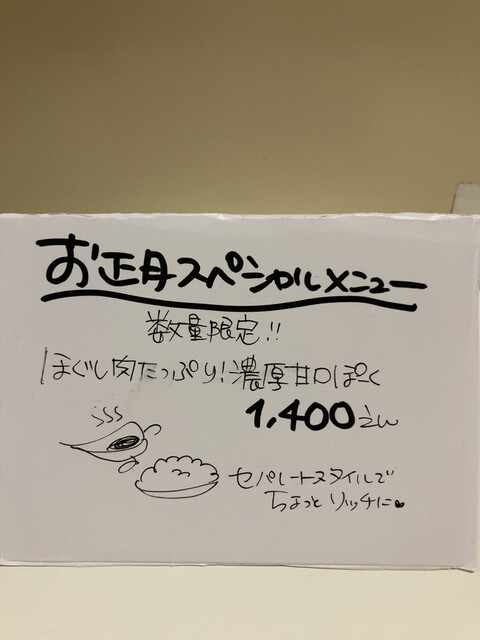 お正月スペシャルメニュー
数量限定!!
ほぐし肉たっぷり!濃厚甘口ぽーく
1,400えん
セパレートスタイルで
ちょっとリッチに